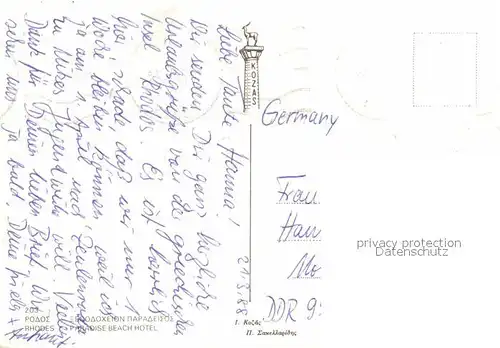 Liebe Tante Hanna!
Wir senden Dir ganz herzliche
Urlaubsgrüße von der griechischen
Insel Rhodos. Es ist herrlich
hier, schade daß wir nur 1
Woche bleiben können, weil ich
ja am 1. April nach Zeulenroda
zu lieben Jugendweihe will. Vielen
Dank für Deinen lieben Brief. Wir
sehen uns ja bald, Deine
21.3.88
KOZAS
Germany
Frau
Han
Mo
DDR 9
privacy protection
AnsichtskartenVersand.com
203
ΡΟΔΟΣ ΞΕΝΟΔΟΧΕΙΟΝ ΠΑΡΑΔΕΙΣΟΣ
RHODES PARADISE BEACH HOTEL
Ι. Κοζάς
Π. Σακελλαρίδης